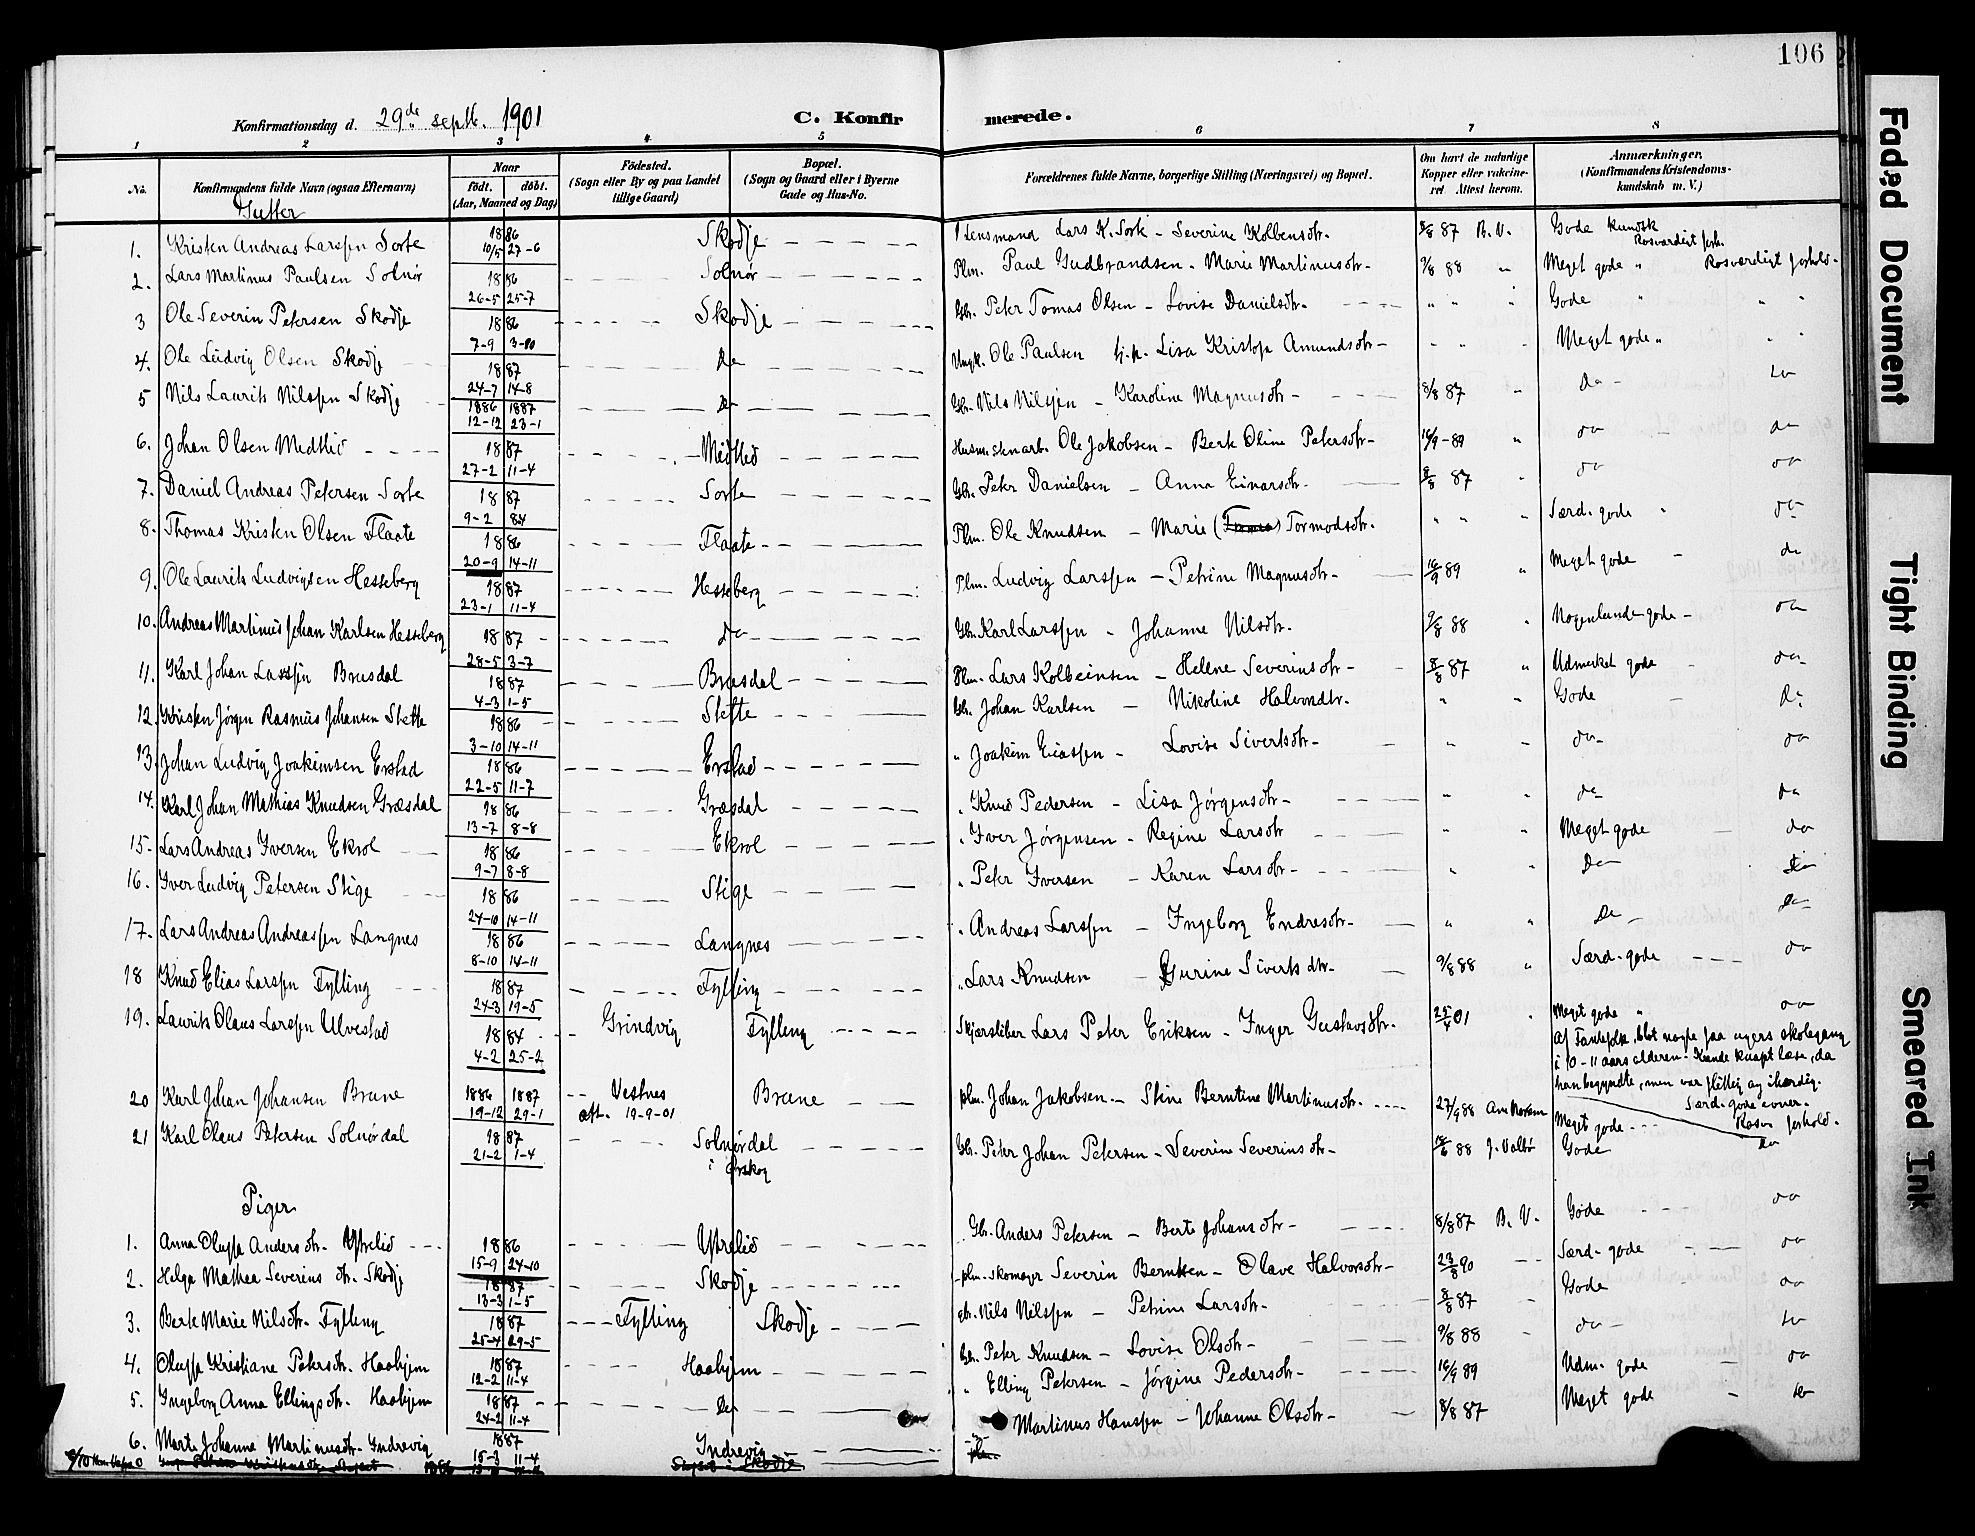 106
Konfirmationsdag d. 29de septb. 1901 C. Konfirmerede.
1 2 3 4 5 6 7 8
No. Konfirmandens fulde Navn (ogsaa Efternavn) Naar födt. döbt. (Aar, Maaned og Dag) Födested. (Sogn eller By og paa Landet tillige Gaard) Bopæl. (Sogn og Gaard eller i Byerne Gade og Hus-No. Forældrenes fulde Navne, borgerlige Stilling (Næringsvei) og Bopæl. Om havt de naturlige Kopper eller vaccineret Attest herom. Anmærkninger. (Konfirmandens Kristendomskundskab m. V.)
Gutter
1. Kristen Andreas Larssen Sorte 1886 10/5 27-6 Skodje Lensmand Lars K. Sorte - Severine Kolbensdtr. 8/8 87 B.V. Gode kundsk Rosværdigt forh.
2. Lars Martinus Paulsen Solnør 1886 26-5 25-7 Solnør Plm. Paul Gudbrandsen - Marie Martinusdtr - 9/8 88 " Meget gode " Rosværdigt forhold -
3 Ole Severin Petersen Skodje 1886 7-9 3-10 Skodje Gbr. Peter Tomas Olsen - Lovise Danielsdtr. " " " Gode " " "
4. Ole Ludvig Olsen Skodje 1887 24-7 14-8 Do Ungk. Ole Paulsen Lisa Kristop Amundsdtr - " " " Meget gode " " "
5 Nils Laurits Nilssen Skodje 1886 1887 12-12 23-1 Do Gbr. Nils Nilssen - Karoline Magnusdtr - 8/8 87 " Do - Do
6. Johan Olsen Medlid 1887 27-2 11-4 Medlid Ole Jakobsen - Berte Oline Petersdtr - 16/9-89 " do do
7. Daniel Andreas Petersen Sorte 1887 9-2 Sorte Gbr. Peter Danielsen - Anna Einarsdtr - 8/8 87 " do do
8. Thomas Kristen Olsen Flaate 1886 20-9 14-11 Flaate Plm. Ole Knudsen - Marie Tormodsdtr. " " " Særd. gode " do
9. Ole Laurits Ludvigsen Hesseberg 1887 23-1 11-4 Hesseberg Plm. Ludvig Larssen - Petrine Magnusdtr - 16/9 89 " Meget gode do
10. Andreas Martinus Johan Karlsen Hesseberg 1887 28-5 3-7 do Gbr. Karl Larssen - Johanne Nilsdtr. 9/8 88 " Nogenlunde gode - do
11. Karl Johan Larssen Brusdal 1887 4-3 1-5 Brusdal Plm. Lars Kolbeinsen - Helene Severinsdtr - 8/8 87 " Udmerket gode do
12. Kristen Jörgen Rasmus Johansen Stette 1886 3-10 14-11 Stette Gbr. Johan Karlsen - Nikoline " " Gode Do
13. Johan Ludvig Joakimsen Erstad 1886 22-5 11-7 Erstad " Joakim - Lovise Sivertsdtr - " " do - do
14. Karl Johan Mathias Knudsen Græsdal 1886 13-7 8-8 Græsdal " Knud Pedersen - Lisa Jörgensdtr - " " do do
15- Lars Andreas Iversen Ekrol 1886 9-7 8-8 Ekrol " Iver Jörgensen - Regine Larsdtr " " Meget gode do
16. Iver Ludvig Petersen Stige 1886 24-10 14-11 Stige " Peter Iversen - Karen Larsdtr - " " Do Do
17. Lars Andreas Andreassen Langnes 1886 8-10 14-11 Langnes " Andreas Larssen - Ingeborg Endresdtr - " " Do - Do
18 Knud Elias Larssen Fylling 1887 24-3 19-5 Fylling " Lars Knudsen - Gurine Siverts dtr - 9/8 88 " Særd. gode do
19. Laurits Olaus Larssen Ulvestad 1884 4-2 25-2 Grindvig Fylling Skjærsliber Lars Peter Eriksen - Inger Gustavsdtr. 25/4 01 " Meget gode " do
Af Fantefolk, blot nogle faa ugers skolegang
i 10-11 aars alderen. Kunde knapt læse, da
han begyndte, men var flittig og ihærdig.
Særd. gode evner -
20 Karl Johan Johansen Brune 1886 1887 19-12 29-1 Vestnes att. 19-9-01 Brune plm. Johan Jakobsen - Stine Berntine Martinusdtr. 27/9 88 Meget gode - Rosv. forhold -
21 Karl Olaus Petersen Solnørdal 1887 21-2 1-4 Solnørdal i Ørskog Gbr. Peter Johan Petersen - Severine Severinsdtr - 88 J. Valbø Gode do
Piger
1. Anna Oluffa Anders dtr. Ytrelid 1886 15-9 24-10 Ytrelid Gbr. Anders Petersen - Berte Johansdtr - 8/8 87 B. V. Gode do
2. Helga Mathea Severins dtr. Skodje 1887 13-3 1-5 Skodje plm. Skomager Severin Berntsen - Olave Halvorsdtr - 23/8 90 Særd. gode do
3. Berte Marie Nilsdtr. Fylling 1887 25-4 29-5 Fylling Skodje Gbr. Nils Nilssen - Petrine Larsdtr - 8/8 87 Gode do
4. Oluffa Kristiane Petersdtr. Haahjem 1887 12-2 11-4 Haahjem Gbr. Peter Knudsen - Lovise Olsdtr - 9/8 88 do - Do
5. Ingeborg Anna Ellingsdtr. Haahjem 1887 24-2 11-4 Do " Elling Petersen - Jörgine Pedersdtr - 16/9 89 Udm. gode do
6. Marte Johanne Martinusdtr. Indrevig 1887 15-3 11-4 Indrevig Martinus Hanssen - Johanne Olsdtr - 8/8 87 Meget gode do
Skodje
Faded Document
Tight Binding
Smeared Ink